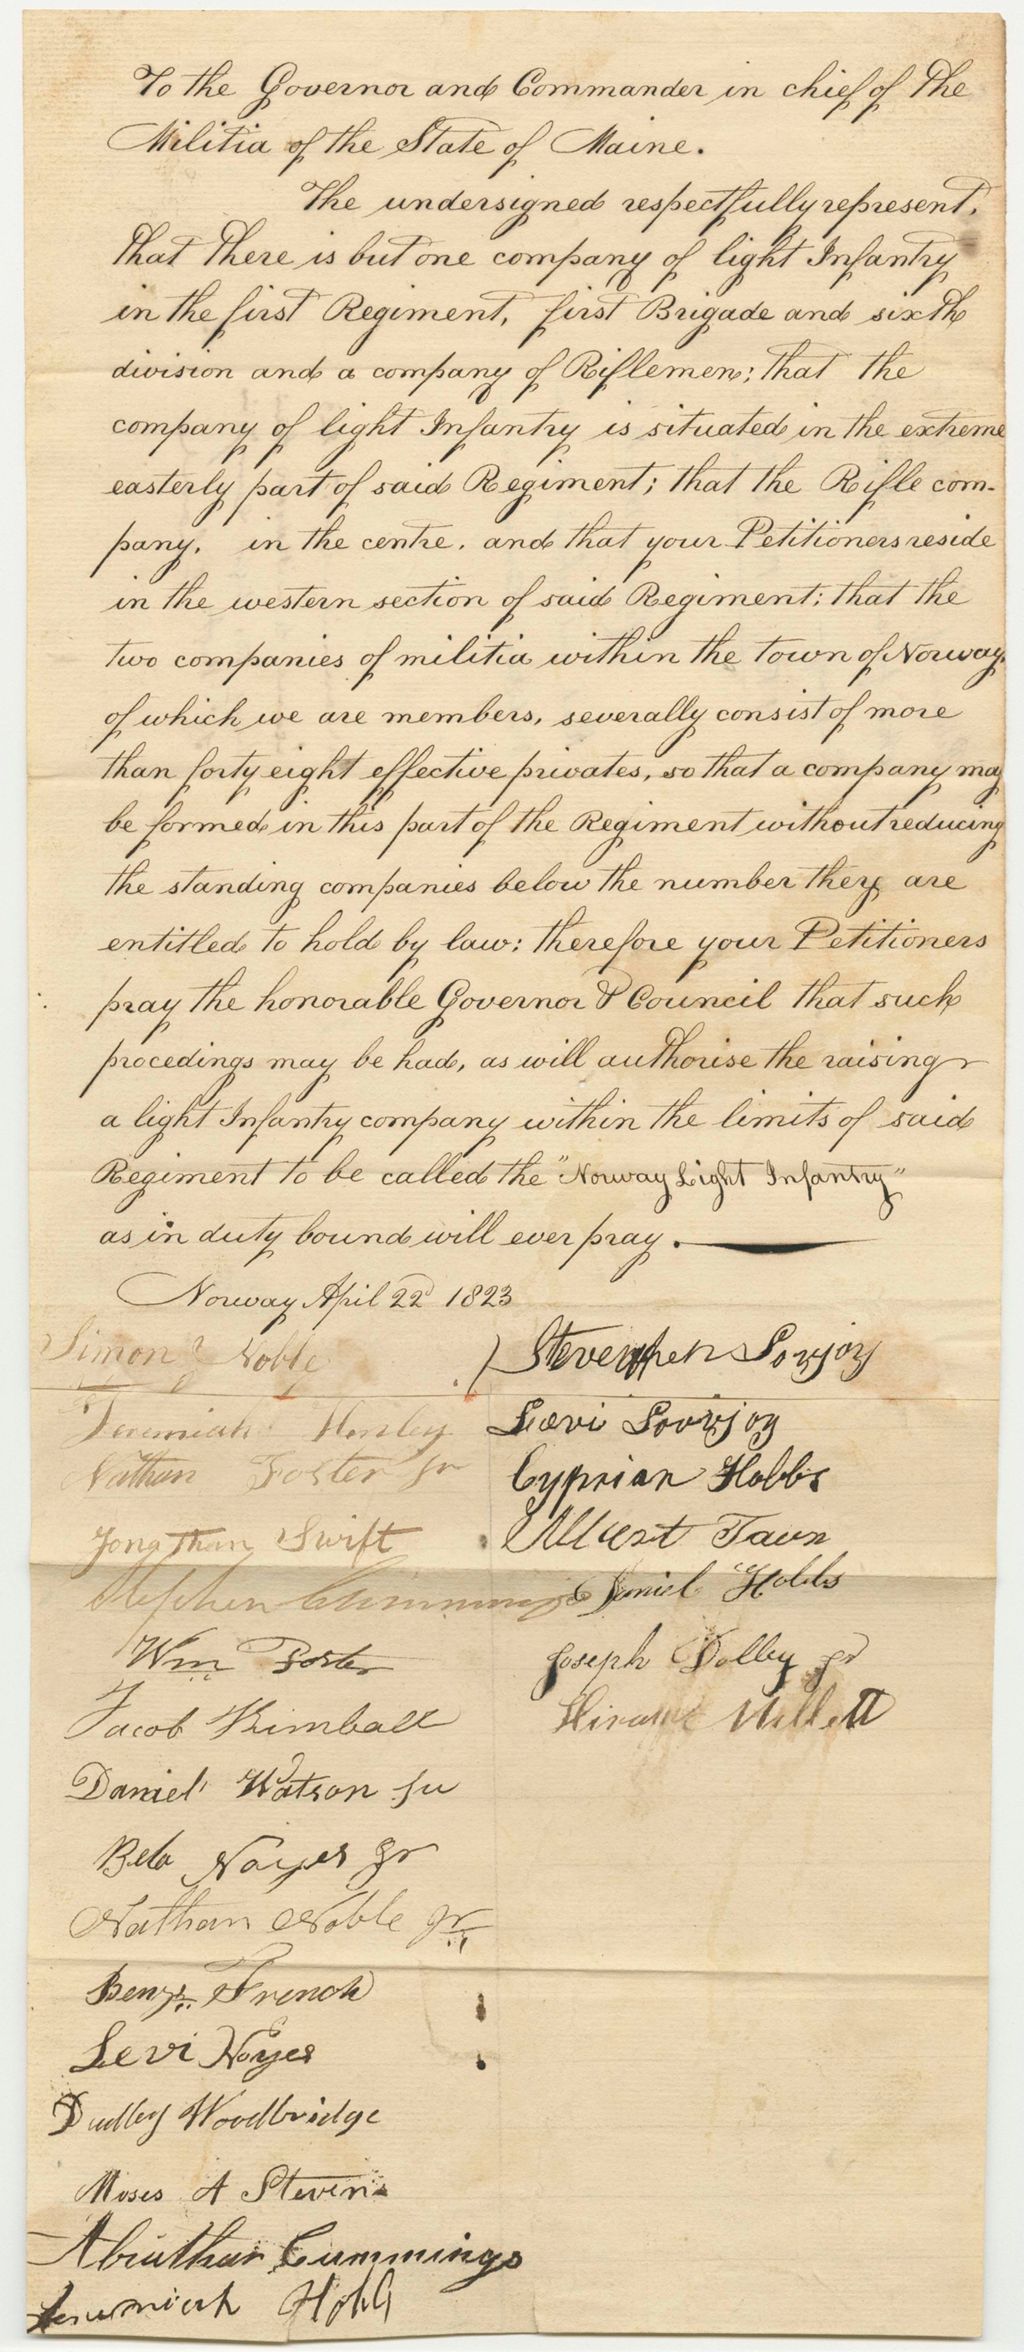 To the Governor and Commander in chief of the
Militia of the State of Maine.
The undersigned respectfully represent,
that there is but one company of light Infantry
in the first Regiment, first Brigade and sixth
division and a company of Riflemen; that the
company of light Infantry is situated in the extreme
easterly part of said Regiment; that the Rifle com-
pany, in the centre, and that your Petitioners reside
in the western section of said Regiment; that the
two companies of militia within the town of Norway,
of which we are members, severally consist of more
than forty eight effective privates, so that a company may
be formed in this part of the Regiment without reducing
the standing companies below the number they are
entitled to hold by law; therefore your Petitioners
pray the honorable Governor & Council that such
procedings may be had, as will authorise the raising
a light Infantry company within the limits of said
Regiment to be called the "Norway Light Infantry"
as in duty bound will ever pray.
Norway April 22d 1823
Simon Noble
Jeremiah Hobbs
Nathan Foster Jr
Jonathan Swift
Stephen Cummings
Wm Foster
Jacob Kimball
Daniel Watson Ju
Bela Noyes Jr
Nathan Noble Jr
Benjn French
Levi Noyes
Dudley Woodbridge
Moses A Stevens
Abiathar Cummings
Jeremiah Hobbs
Stevephen Lovjoy
Levi Lovejoy
Cyprian Hobbs
Albert Town
Daniel Hobbs
Joseph Dolley Jr
Hiram Millett